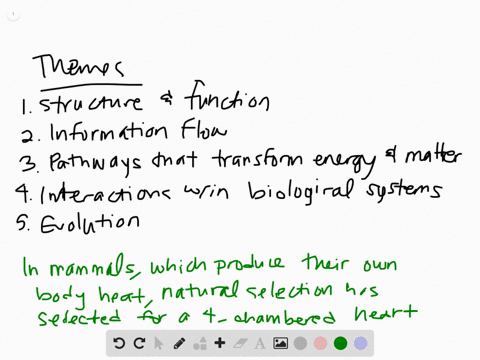 Themes
1. Structure & function
2. Information Flow
3. Pathways that transform energy & matter
4. Interactions w/in biological systems
5. Evolution
In mammals, which produce their own
body heat, natural selection has
selected for a 4-chambered heart